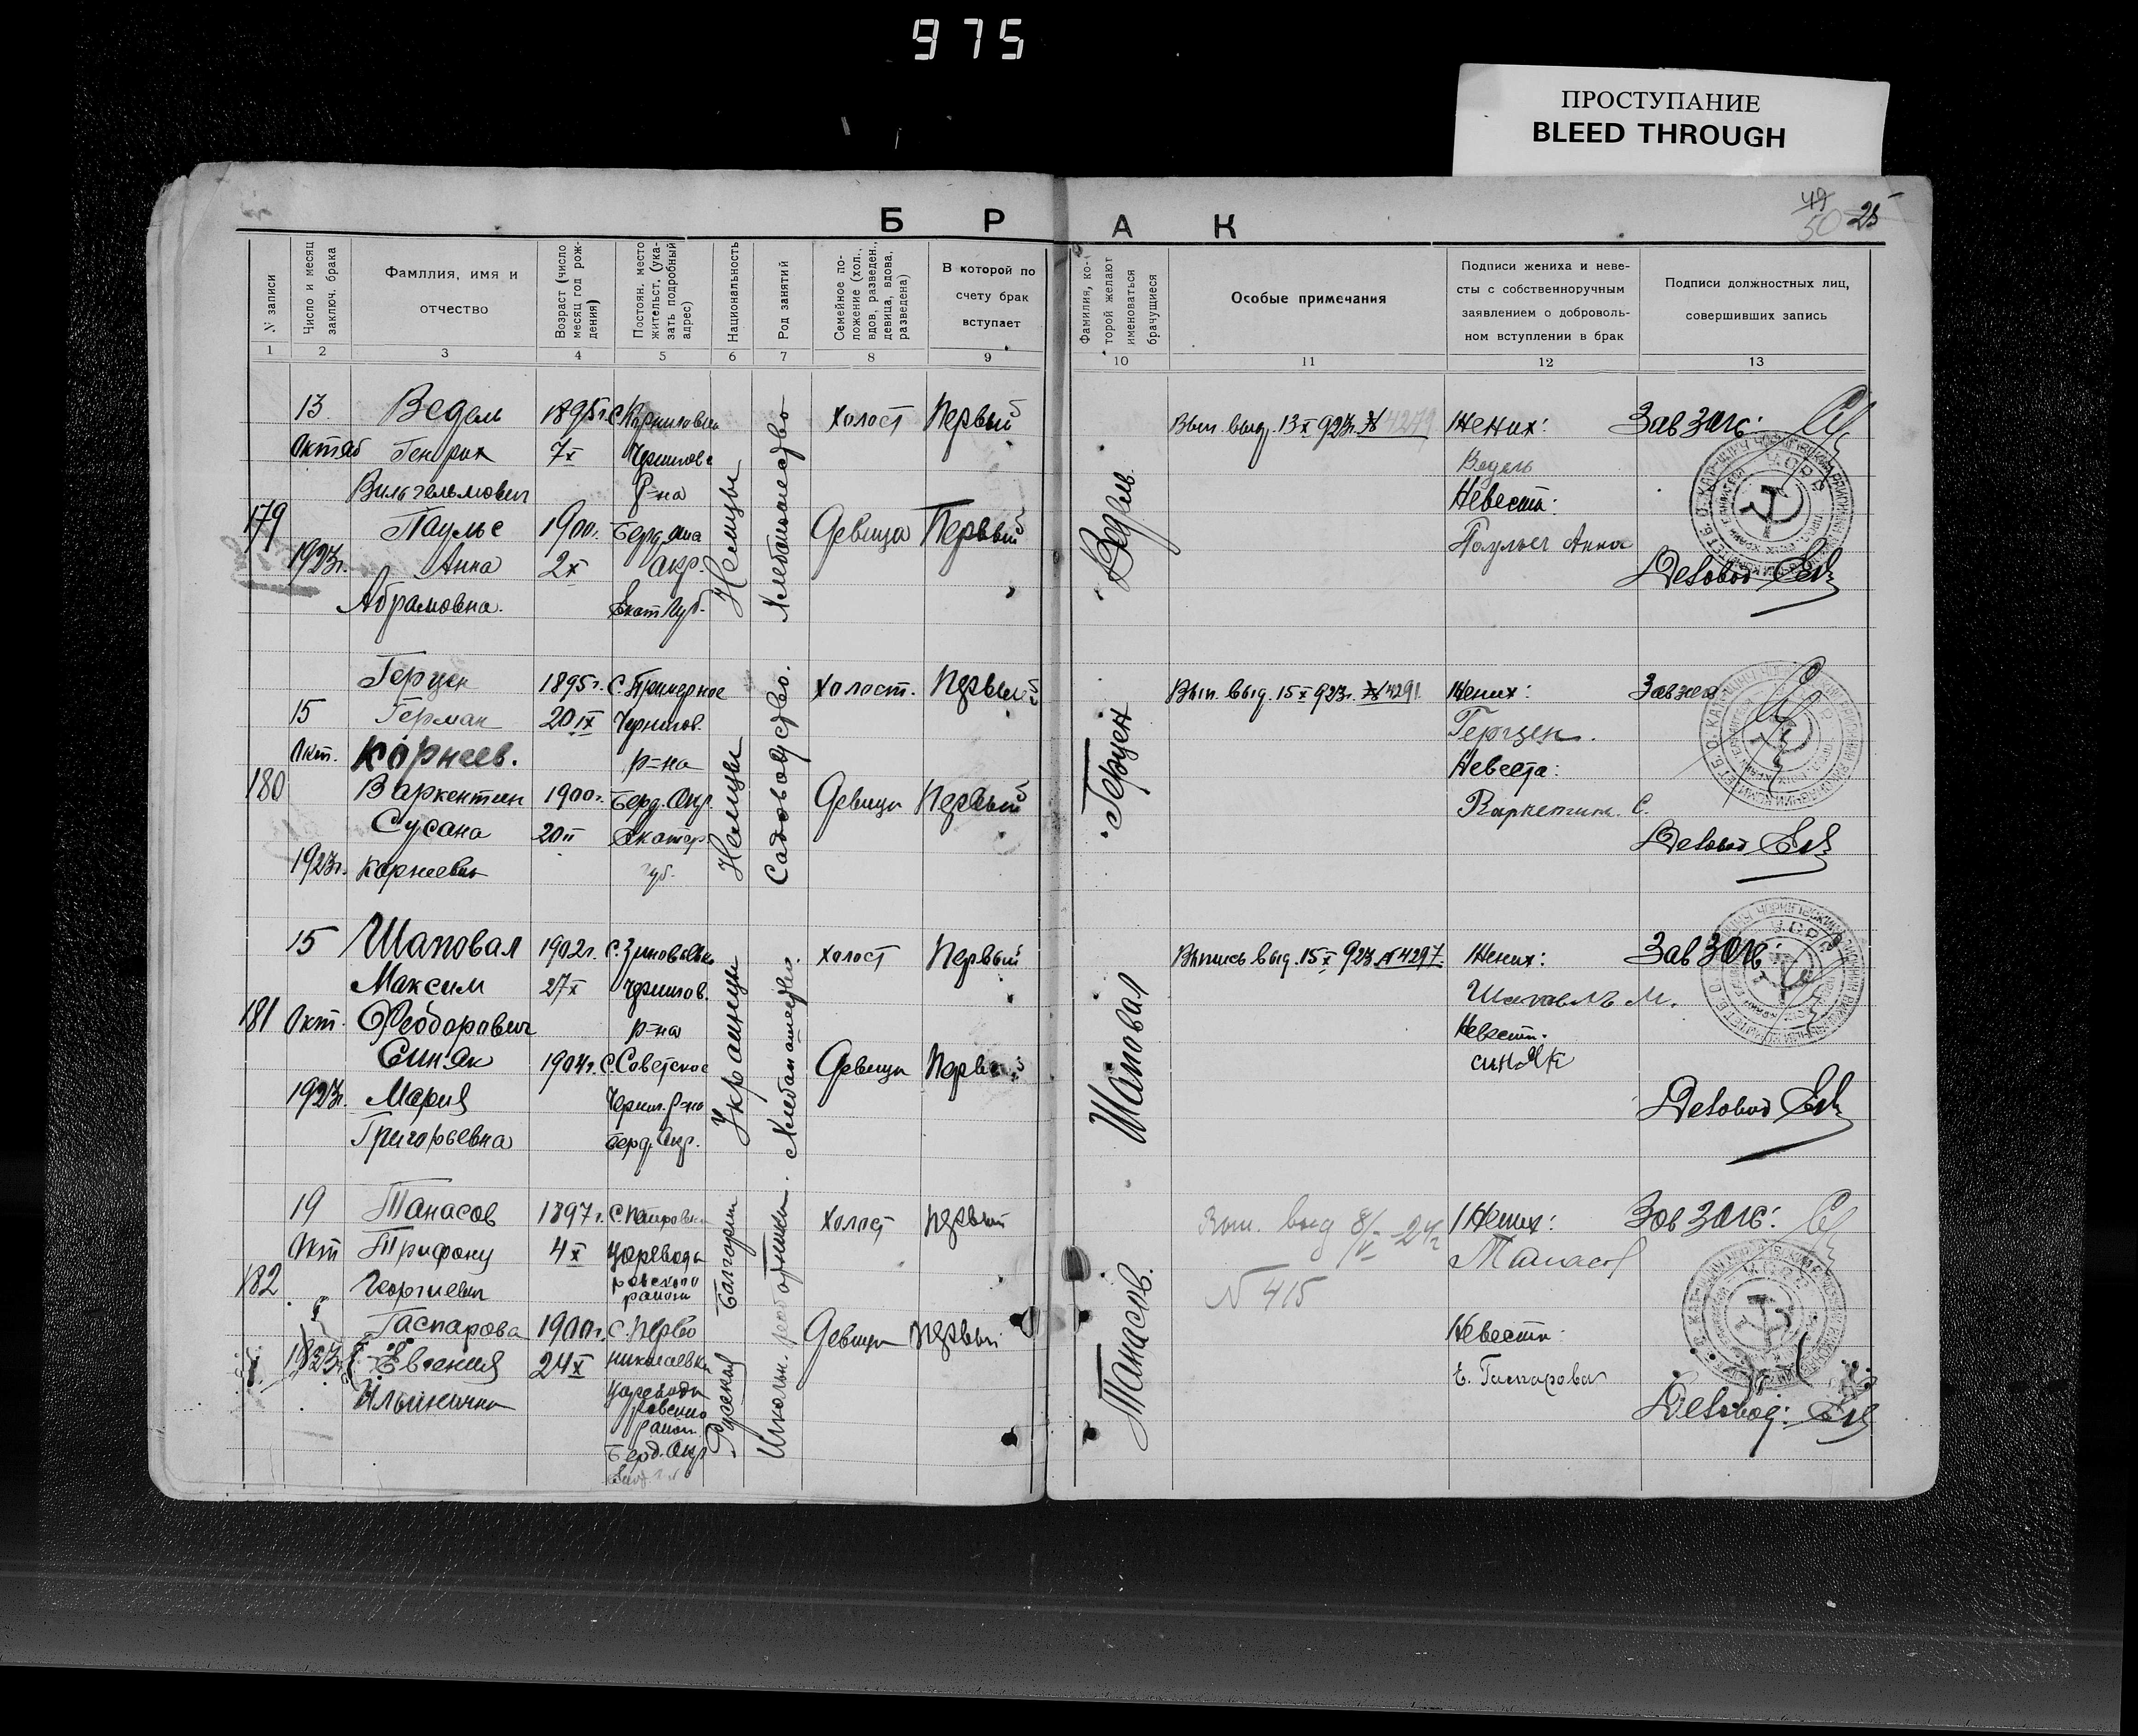 975
ПРОСТУПАНИЕ
BLEED THROUGH
49
50 25
Б Р А К
N записи
Число и месяц заключ. брака
Фамллия, имя и отчество
Возраст (число месяц год рождения)
Постоян. место жительст. (указать подробный адрес)
Национальность
Род занятий
Семейное положение (хол., вдов, разведен., девица, вдова, разведена)
В которой по счету брак вступает
Фамилия, которой желают именоваться брачущиеся
Особые примечания
Подписи жениха и невесты с собственноручным заявлением о добровольном вступлении в брак
Подписи должностных лиц, совершивших запись
1 2 3 4 5 6 7 8 9 10 11 12 13
179
13 Октяб 1923г.
Ведель
Генрих
Вильгельмович
1895г.
7 X
Чернигов
р-на
Холост Первый
Паульс
Анна
Абрамовна.
1900г.
2 X
Берд.
Окр.
Екат. Губ.
Девица Первый
Немцы
Хлебопашество
Ведель
Вып. выд. 13 X 923г. № 4279
Жених:
Ведель
Невеста:
Паульс Анна
Зав Загс:
Деловод
180
15 Окт. 1923г.
Герцен
Герман
Корнеев.
1895г.
20 IX
С. Примерное
Чернигов.
р-на
Холост. Первый
Варкентин
Сусана
Корнеевна
1900г.
20 II
Берд. Окр.
Екатер.
губ.
Девица Первый
Немцы
Садоводство.
Герцен
Вып. выд. 15 X 923г. № 4291
Жених:
Герцен.
Невеста:
Варкентин. С.
Зав загс
Деловод
181
15 Окт. 1923г.
Шаповал
Максим
Феодорович
1902г.
27 X
Чернигов.
р-на
Холост Первый
Синяк
Мария
Григорьевна
1904г.
С. Советское
Черниг. р-на
Берд. Окр.
Девица Первый
Украинцы
Хлебопашество.
Шаповал
Выпись выд. 15 X 923 № 4297.
Жених:
Шаповалъ М.
Невеста.
синяк
Зав Загс:
Деловод
182
19 Окт 1923г.
Танасов
Трифону
Георгиевич
1897г.
4 X
Цареводаровского
района
Холост Первый
Гаспарова
Евгения
Ильинична
1900г.
24 X
Николаевка
Цареводаровского
район.
Берд. Окр
Девица Первый
Болгарин
Русская
Школьн. работники.
Танасов.
Вып. выд 8/V-24г
N 415
Жених:
Танасов
Невеста:
Е. Гаспарова
Зав Загс:
Деловод: